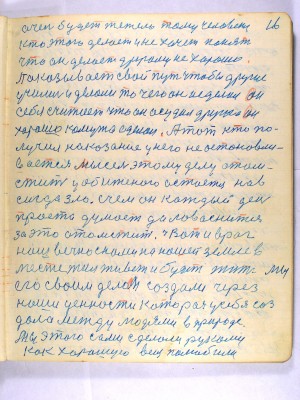 26
очен будет жетель тому человеку
кто этого делает и не хочет понят
что он делает другому не хорошо.
Показывает свой пут чтобы другие
учили и делали то чего он сделал он
себя считает что он осудил другого он
хорошо кому то сделал. А тот кто по-
лучил наказание у него не остоновли-
вается мысел этому делу отом-
стит у обиженого остается нав
сигда зло. С чем он каждый ден
просто думает да и ловаснится
за это отомстит. Вот и враг
наш вечно с нами на нашей земле в
месте жил живет и будет жить мы
его своим делам создали через
наши ценности которая у себя соз
дала между людями в природе
Мы этого сами сделали рукому
как харошую вещ полюбили